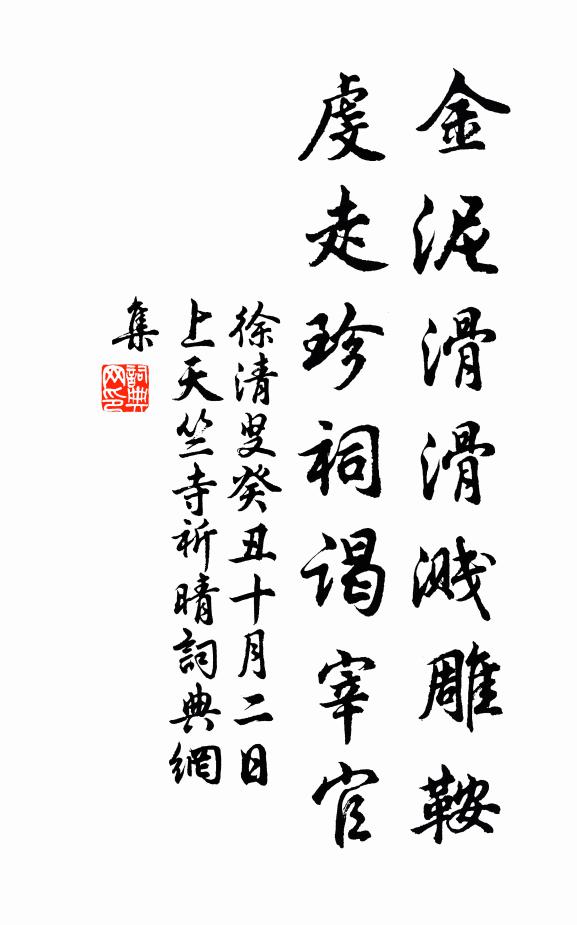 金泥滑滑溅雕鞍
虔走珍祠谒宰官
徐清叟癸丑十月二日
上天竺寺祈晴詞典網
集
詞典
网印